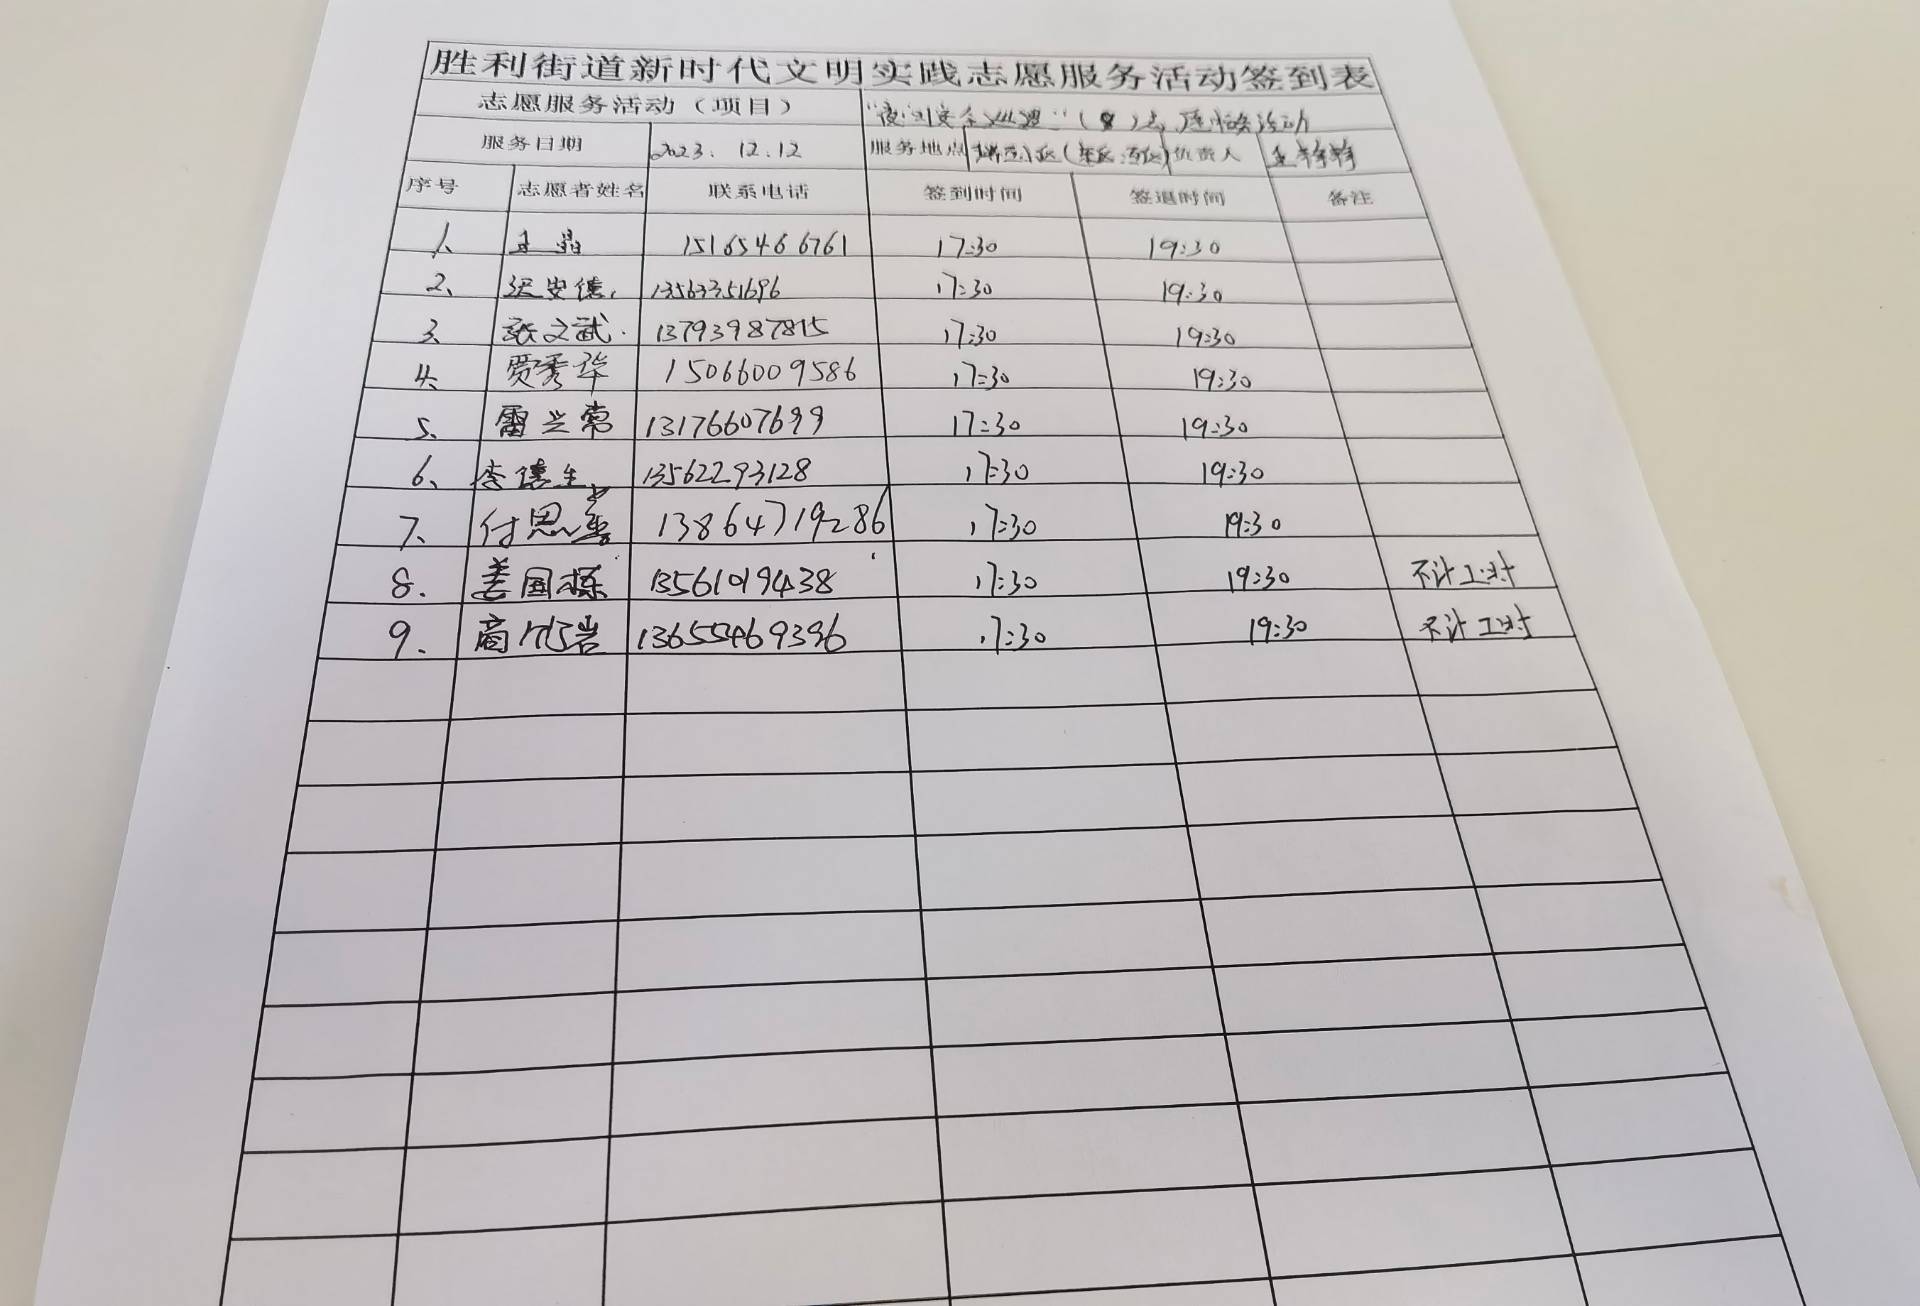 胜利街道新时代文明实践志愿服务活动签到表
志愿服务活动（项目） "夜间安全巡逻"（8）志愿服务活动
服务日期 2023. 12.12 服务地点 (东区.西区) 负责人
序号 志愿者姓名 联系电话 签到时间 签退时间 备注
1、 王晶 15165466761 17:30 19:30
2、 安德 13563351696 17:30 19:30
3、 张文武 13793987815 17:30 19:30
4、 贾秀华 15066009586 17:30 19:30
5、 雷兰常 13176607699 17:30 19:30
6、 李德生 13562293128 17:30 19:30
7、 付思 13864719286 17:30 19:30
8. 姜国栋 13561019438 17:30 19:30 不计工时
9. 商 岩 13655469396 17:30 19:30 不计工时